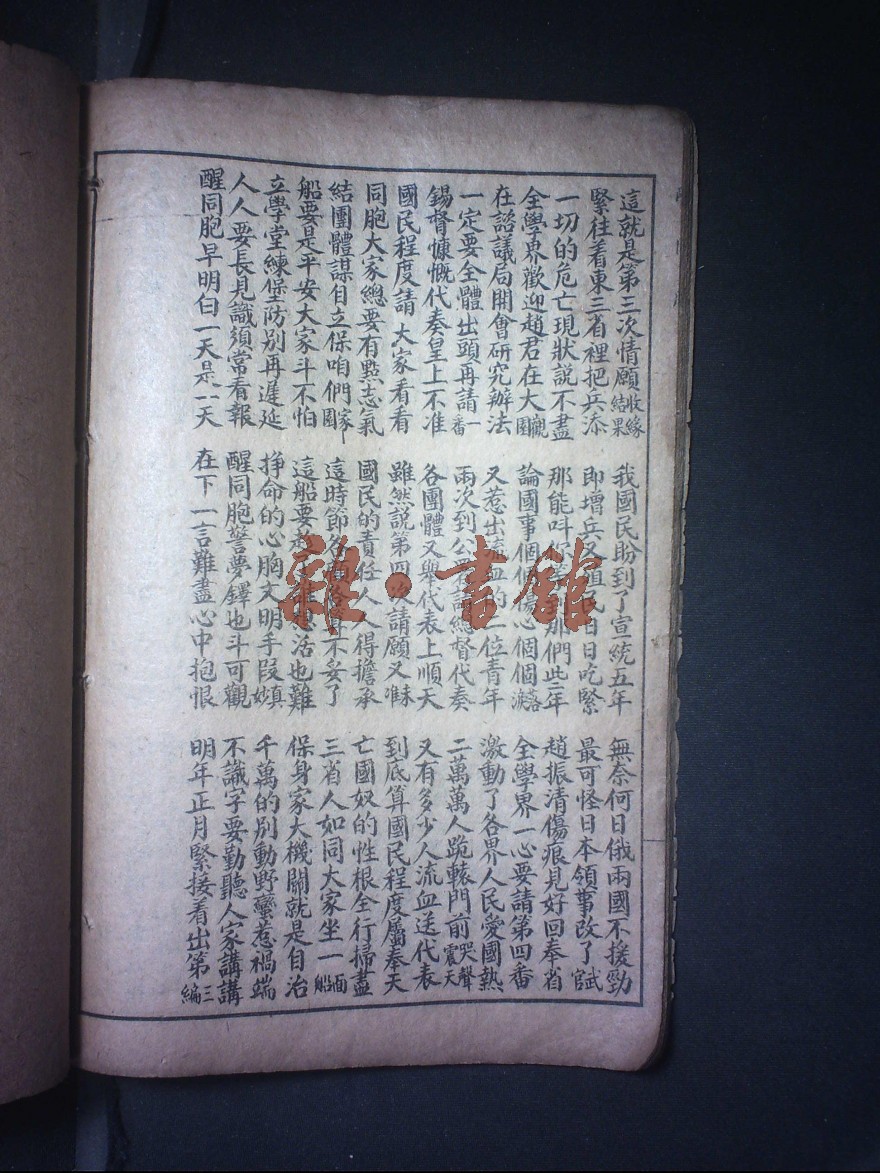 這就是第三次情願收緣結果　我國民盼到了宣統五年　無奈何日俄兩國不援勁
緊往着東三省裡把兵添　即增兵又殖民日日吃緊　最可怪日本領事改了武官
一切的危亡現狀說不盡　那能呌你等到那們些年　趙振清傷痕見好回奉省
全學界歡迎趙君在大觀園　論國事個個傷心個個落淚　全學界一心要請第四番
在諮議局開會研究辦法　又惹出流血的二位青年　激動了各界人民愛國熱
一定要全體出頭再請一番　兩次到公署請總督代奏　二萬萬人跪轅門前哭聲震天
錫督慷慨代奏皇上不准　各團體又舉代表上順天　又有多少人流血送代表
國民程度請 大家看看　雖然說第四次請願又未准　到底算國民程度屬奉天
同胞大家總要有點志氣　國民的責任人人得擔承　亡國奴的性根全行掃盡
結團體謀自立保咱們國家　這時節各顧各算不妥了　三省人如同大家坐一面船
船要是平安大家斗不怕　這船要想活也難　保身家大機關就是自治
立學堂練堡防別再遲延　掙命的心胸文明手段真妙　千萬的別動野蠻惹禍端
人人要長見識須常看報　醒同胞警夢鐸也斗可觀　不識字要勤聽人家講講
醒同胞早明白一天是一天　在下一言難盡心中抱恨　明年正月緊接着出第三編
雜·書館